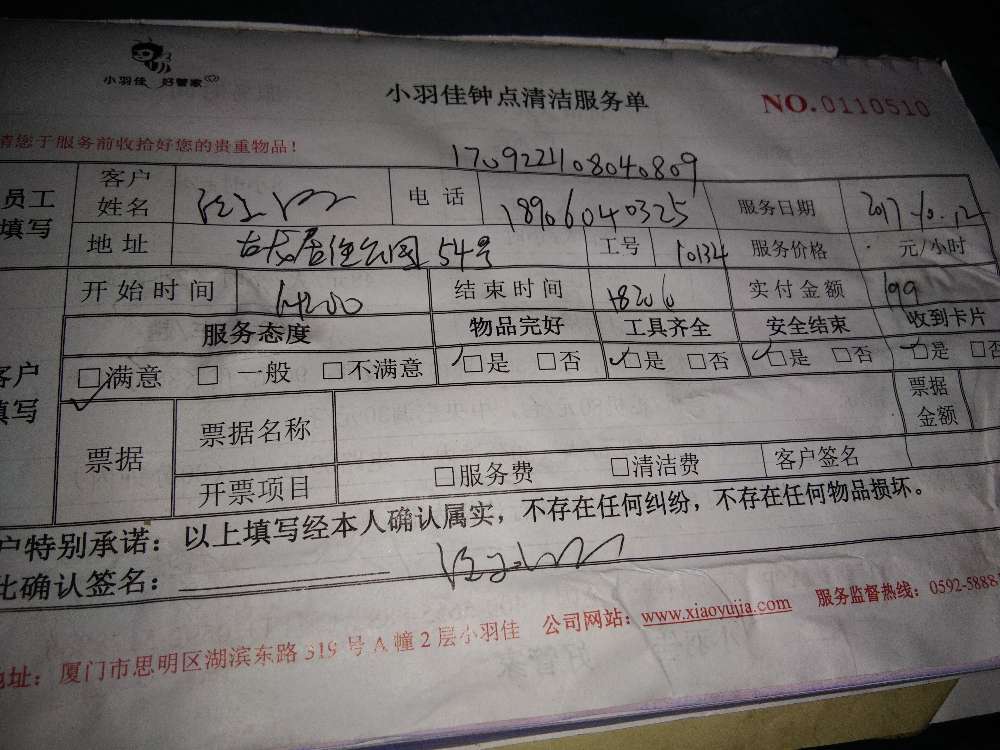 小羽佳 好管家
小羽佳钟点清洁服务单
NO.0110510
请您于服务前收拾好您的贵重物品!
170922108040809
员工填写
客户姓名
电话 18906040325
服务日期 2017.10.12
地址 54号
工号 10134
服务价格 元/小时
开始时间
结束时间
实付金额 199
服务态度 物品完好 工具齐全 安全结束 收到卡片
客户填写
□满意 □一般 □不满意 □是 □否 □是 □否 □是 □否 □是 □否
票据
票据名称
票据金额
开票项目 □服务费 □清洁费 客户签名
户特别承诺:以上填写经本人确认属实,不存在任何纠纷,不存在任何物品损坏。
此确认签名:
地址:厦门市思明区湖滨东路319号A幢2层小羽佳 公司网站:www.xiaoyujia.com 服务监督热线:0592-5888